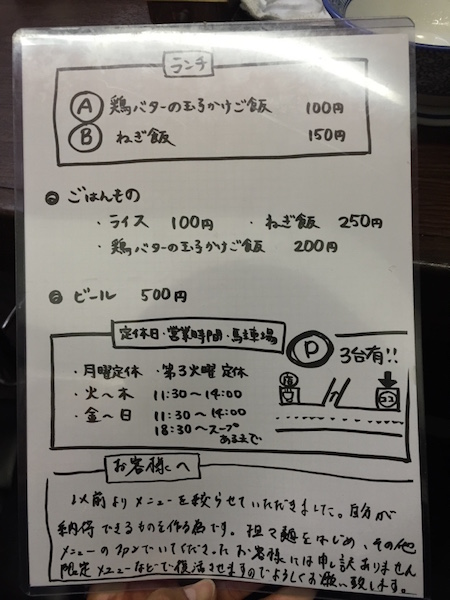 ランチ
Ⓐ 鶏バターの玉子かけご飯 100円
Ⓑ ねぎ飯 150円
ごはんもの
・ライス 100円 ・ねぎ飯 250円
・鶏バターの玉子かけご飯 200円
ビール 500円
定休日・営業時間・駐車場
Ⓟ 3台有!!
・月曜定休 ・第3火曜定休
・火〜木 11:30〜14:00
・金〜日 11:30〜14:00
18:30〜スープあるまで
ココ
お客様へ
以前よりメニューを絞らせていただきました。自分が
納得できるものを作る為です。担々麺をはじめ、その他
メニューのファンでいてくださったお客様には申し訳ありません
限定メニューなどで復活させますのでよろしくお願い致します。